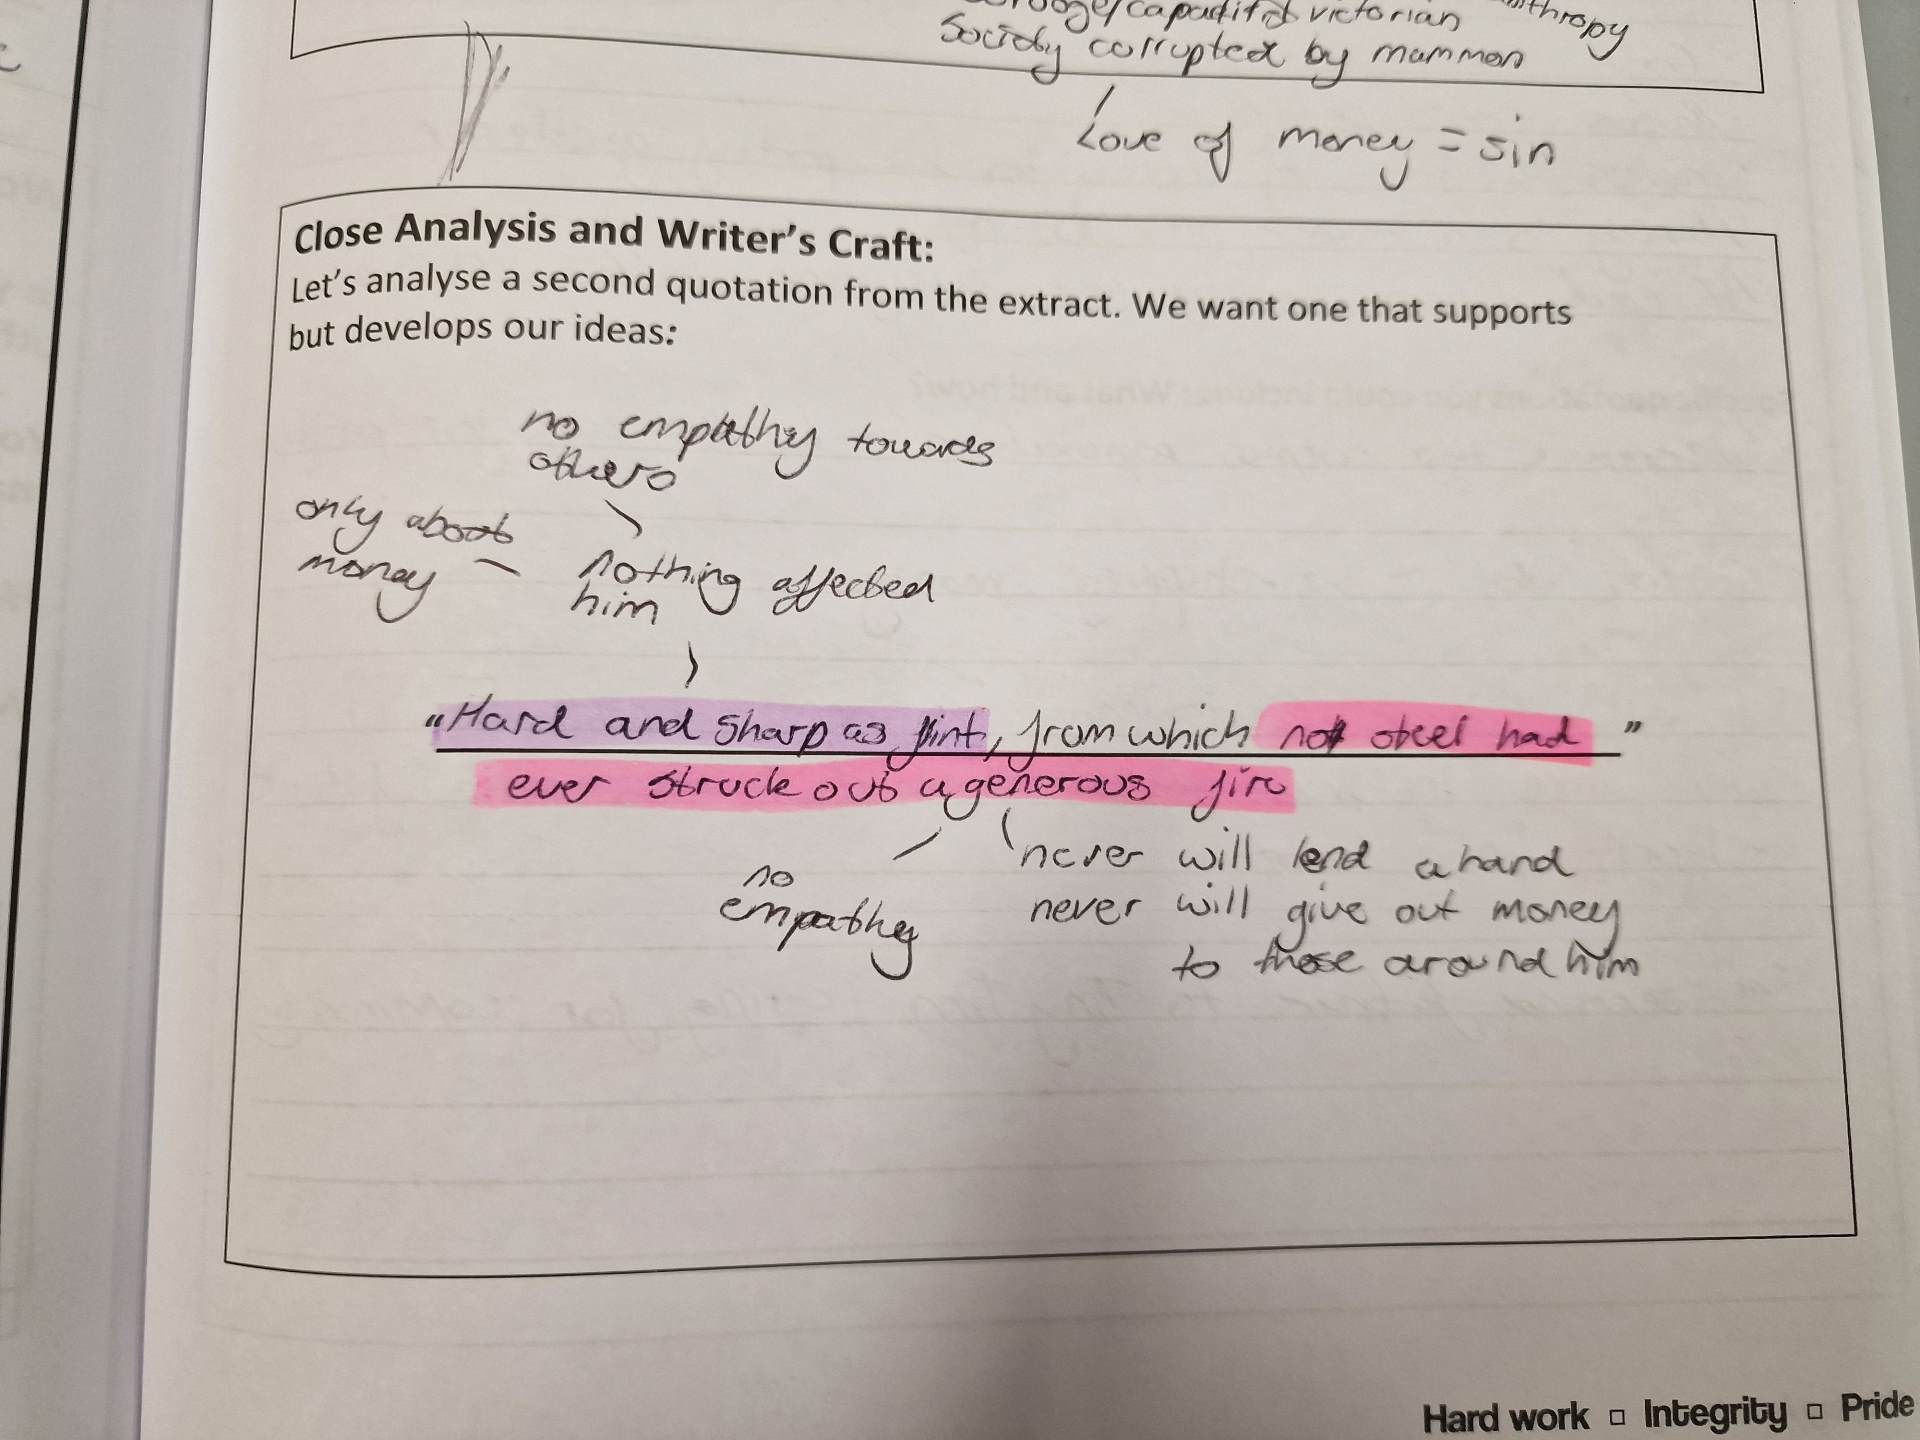 capitalist victorian
Society corrupted by mammon
Love of money = sin
Close Analysis and Writer's Craft:
Let's analyse a second quotation from the extract. We want one that supports
but develops our ideas:
no empathy towards
others
only about
money
nothing affected
him
"Hard and sharp as flint, from which no steel had"
ever struck out a generous fire
no
empathy
never will lend a hand
never will give out money
to those around him
Hard work □ Integrity □ Pride